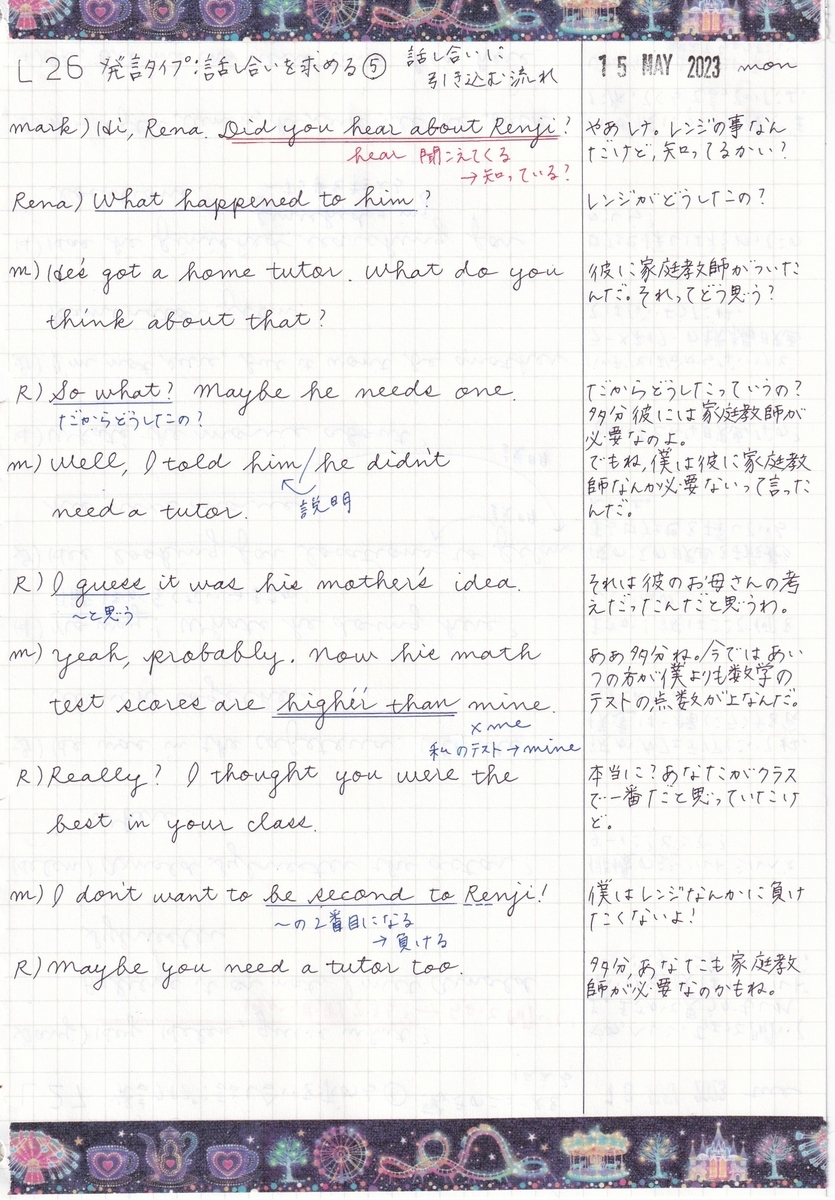 L26 発言タイプ:話し合いを求める⑤ 話し合いに
引き込む流れ
15 MAY 2023 mon
mark) Hi, Rena. Did you hear about Renji?
hear 聞こえてくる
→知っている?
やあレナ。レンジの事なん
だけど、知ってるかい?
Rena) What happened to him?
レンジがどうしたの?
m) He's got a home tutor. What do you
think about that?
彼に家庭教師がついた
んだ。それってどう思う?
R) So what? Maybe he needs one.
だからどうしたの?
だからどうしたっていうの?
多分彼には家庭教師が
必要なのよ。
m) Well, I told him/he didn't
need a tutor.
説明
でもね、僕は彼に家庭教
師なんか必要ないって言った
んだ。
R) I guess it was his mother's idea.
~と思う
それは彼のお母さんの考
えだったんだと思うわ。
m) Yeah, probably. Now his math
test scores are higher than mine.
×me
私のテスト→mine
ああ多分ね。今ではあい
つの方が僕よりも数学の
テストの点数が上なんだ。
R) Really? I thought you were the
best in your class.
本当に?あなたがクラス
で一番だと思っていたけ
ど。
m) I don't want to be second to Renji!
~の2番目になる
→負ける
僕はレンジなんかに負け
たくないよ!
R) Maybe you need a tutor too.
多分,あなたも家庭教
師が必要なのかもね。